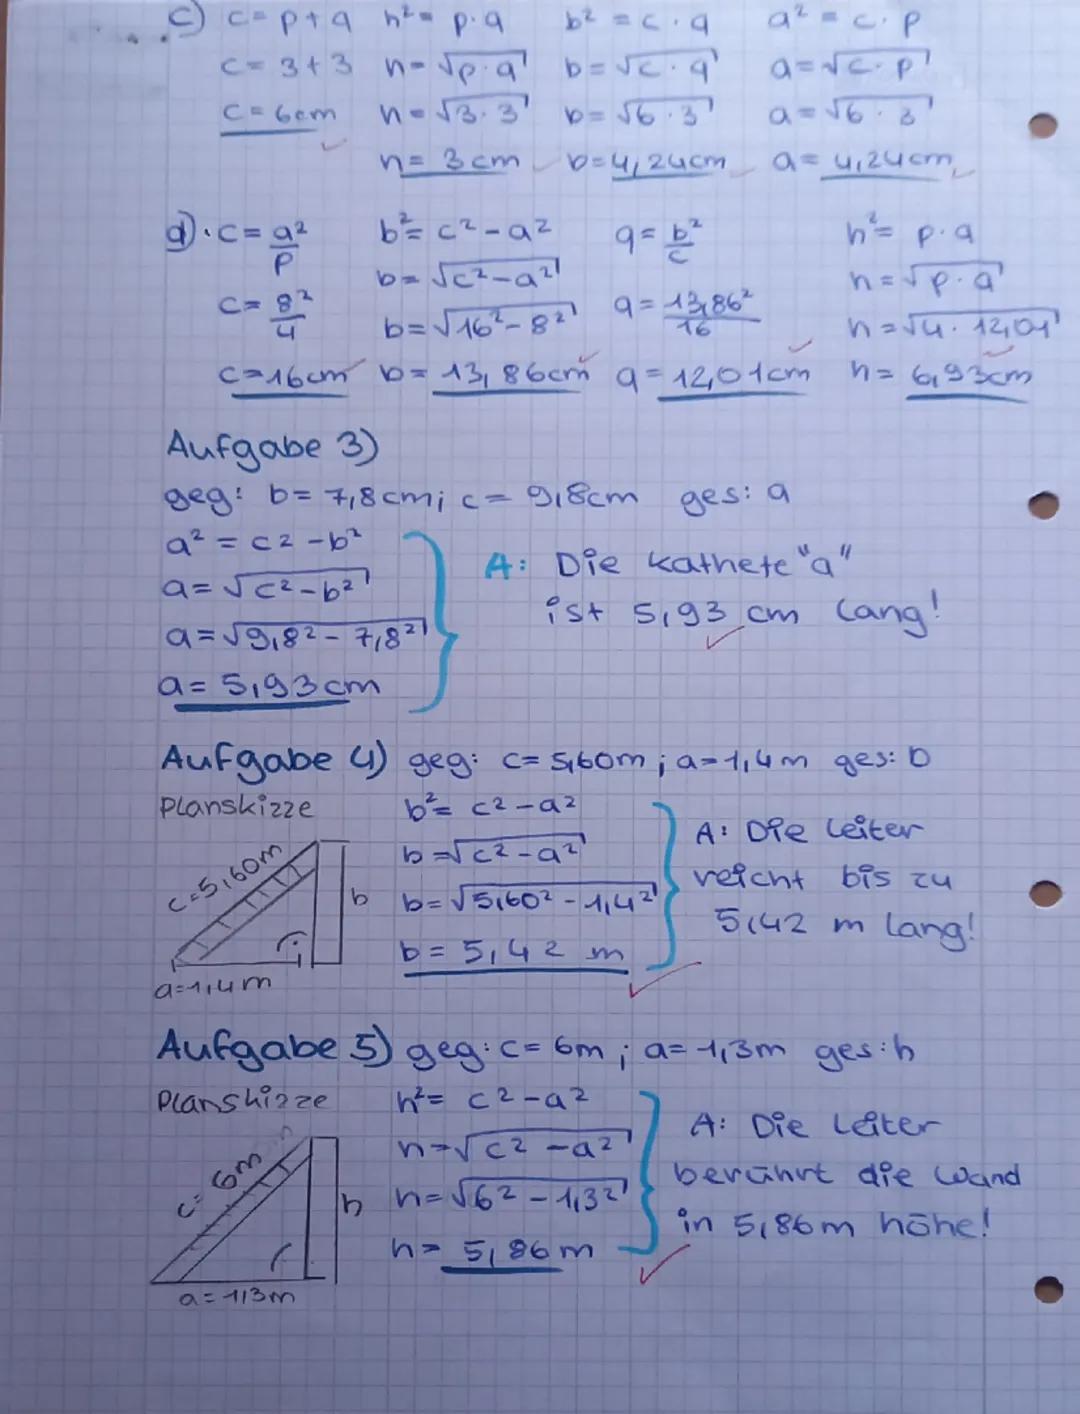 c) c = p + q h² = p · q b² = c · q a² = c · p
c = 3 + 3 h = √p · q b = √c · q a = √c · p
c = 6cm h = √3 · 3 b = √6 · 3 a = √6 · 3
h = 3 cm b = 4,24cm a = 4,24cm
d) · c = a²/p b² = c² - a² q = b²/c h² = p · q
b = √c² - a² h = √p · q
c = 8²/4 b = √16² - 8² q = 13,86²/16 h = √4 · 12,01
c = 16cm b = 13,86cm q = 12,01cm h = 6,93cm
Aufgabe 3)
geg: b = 7,8cm; c = 9,8cm ges: a
a² = c² - b²
a = √c² - b²
a = √9,8² - 7,8²
a = 5,93cm
A: Die Kathete "a"
ist 5,93 cm lang!
Aufgabe 4) geg: c = 5,60m; a = 1,4m ges: b
Planskizze
c = 5,60m
b
a = 1,4m
b² = c² - a²
b = √c² - a²
b = √5,60² - 1,4²
b = 5,42 m
A: Die Leiter
reicht bis zu
5,42 m lang!
Aufgabe 5) geg: c = 6m; a = 1,3m ges: h
Planskizze
c = 6m
h
a = 1,3m
h² = c² - a²
h = √c² - a²
h = √6² - 1,3²
h = 5,86m
A: Die Leiter
berührt die Wand
in 5,86m höhe!